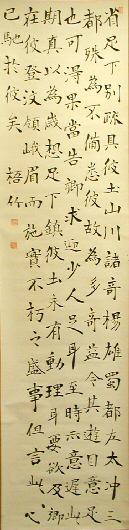 省足下別疏具彼土山川諸奇楊雄蜀都左太沖三
都殊為不備悉彼故為多奇益令其遊目意足
也可得果當告卿求迎少人足耳至時示意遲此
期真以為歲想足下鎮彼土未有動理耳要欲及卿
在彼登汶領峨眉而旋實不朽之盛事但言此心
已馳於彼矣 梧竹